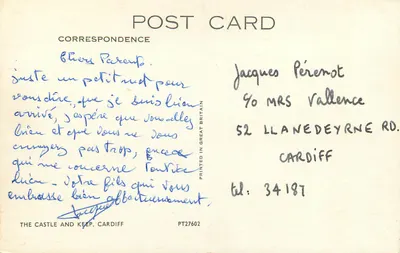 POST CARD
CORRESPONDENCE
Chers Parents.
juste un petit mot pour
vous dire, que je suis bien
arrivé, j'espère que vous allez
bien et que vous ne vous
ennuyez pas trop,
qui me concerne tout va
bien. Votre fils qui vous
embrasse bien affectueusement.
Jacques
THE CASTLE AND KEEP, CARDIFF
PT27602
PRINTED IN GREAT BRITAIN
Jacques Pérenot
c/o MRS Vallence
52 LLANEDEYRNE RD.
CARDIFF
tel: 34187